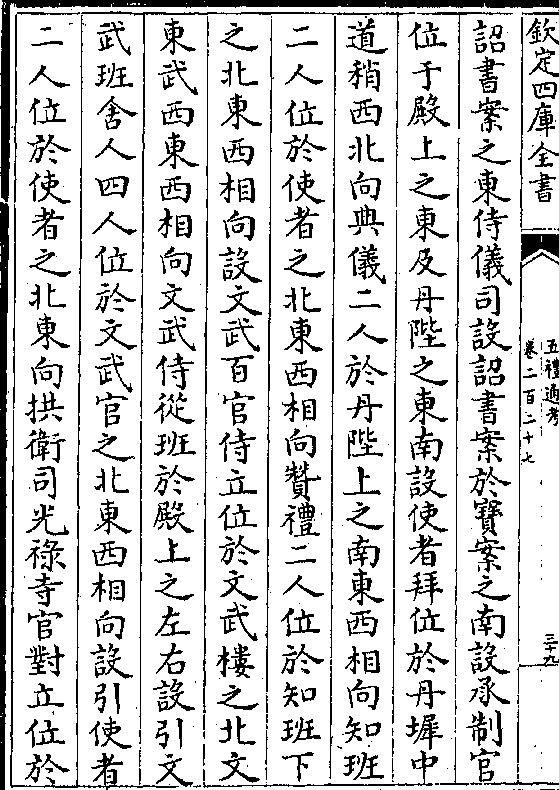 欽定四庫全書
五禮通考
卷二百二十七
三十九
詔書案之東侍儀司設詔書案於寶案之南設承制官
位于殿上之東及丹陛之東南設使者拜位於丹墀中
道稍西北向典儀二人於丹陛上之南東西相向知班
二人位於使者之北東西相向贊禮二人位於知班下
之北東西相向設文武百官侍立位於文武樓之北文
東武西東西相向文武侍從班於殿上之左右設引文
武班舍人四人位於文武官之北東西相向設引使者
二人位於使者之北東向拱衛司光祿寺官對立位於